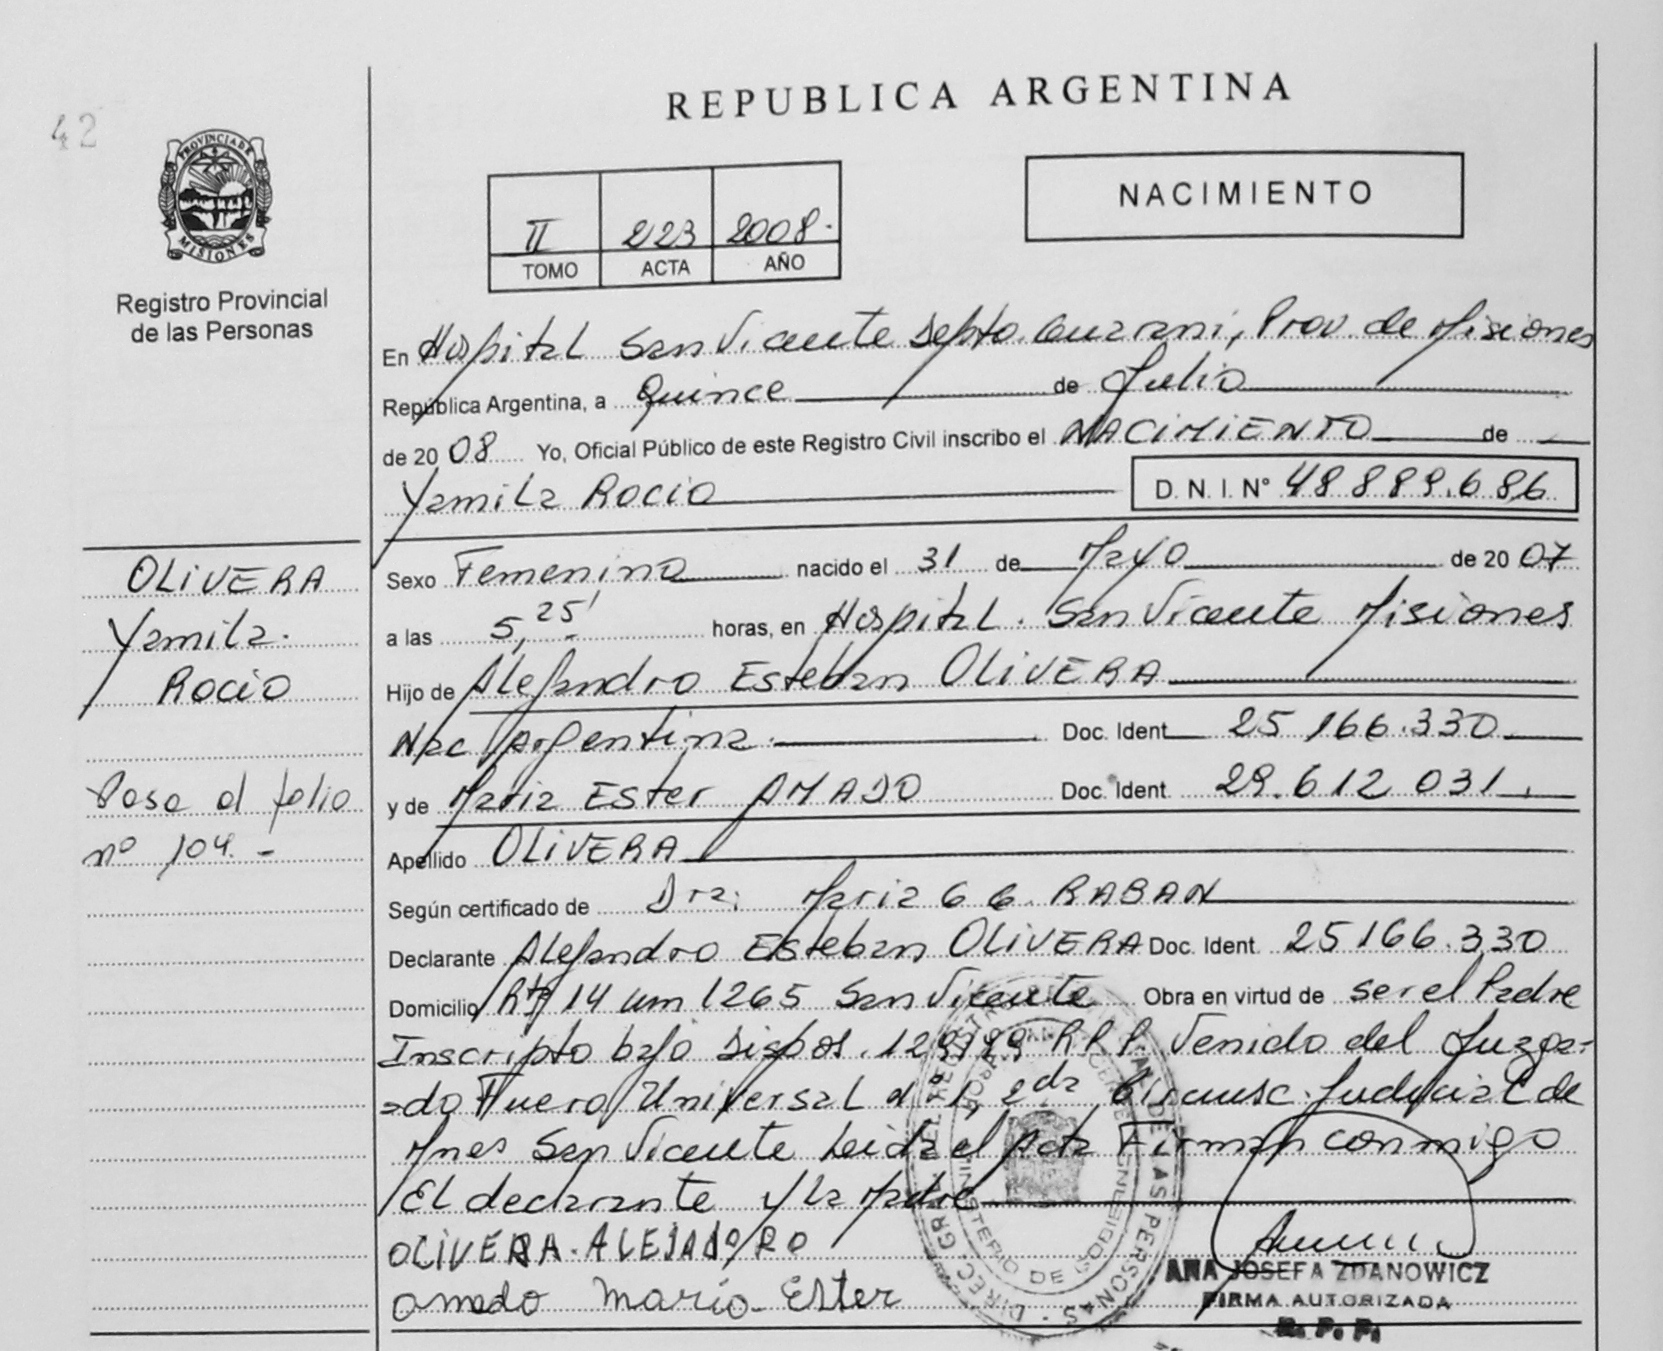 42
REPUBLICA ARGENTINA
PROVINCIA DE
MISIONES
Registro Provincial
de las Personas
II 223 2008.
TOMO ACTA AÑO
NACIMIENTO
En Hospital San Vicente Depto. Guarani, Prov. de Misiones
República Argentina, a Quince de Julio
de 2008 Yo, Oficial Público de este Registro Civil inscribo el NACIMIENTO de
Yamila Rocio D. N. I. N° 48889.686
OLIVERA
Yamila.
Rocio
Pasa al folio
nº 104. -
Sexo Femenino nacido el 31 de Mayo de 2007
a las 5,25' horas, en Hospital. San Vicente Misiones
Hijo de Alejandro Esteban OLIVERA
Nac Argentina. Doc. Ident 25 166.330
y de Maria Ester AMADO Doc. Ident 29.612 031.
Apellido OLIVERA
Según certificado de Dra: Maria G G. RABAN
Declarante Alejandro Esteban OLIVERA Doc. Ident. 25166.330
Domicilio Rta 14 km 1265 San Vicente Obra en virtud de ser el Padre
Inscripto bajo Dispos. R P P. Venido del Juzga-
-do Fuero Universal nº 1, 2da Circunsc. Judicial de
Mnes San Vicente Leida el Acta Firman conmigo
El declarante y la Madre
OLIVERA ALEJADRO
amado Maria Ester
DIREC. GRAL. DEL REGISTRO DE LAS PERSONAS
MINISTERIO DE GOBIERNO
ANA JOSEFA ZDANOWICZ
FIRMA AUTORIZADA
R. P. P.